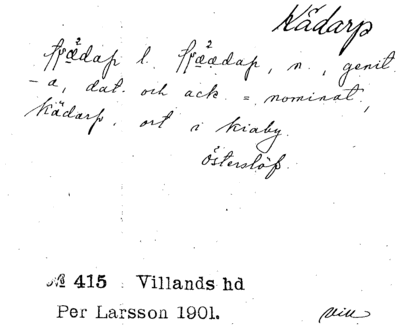 Kädarp
l. , n., genit.
-a, dat. och ack. = nominat,
Kädarp, ort i Kiaby
Österslöf.
№ 415 Villands hd
Per Larsson 1901.